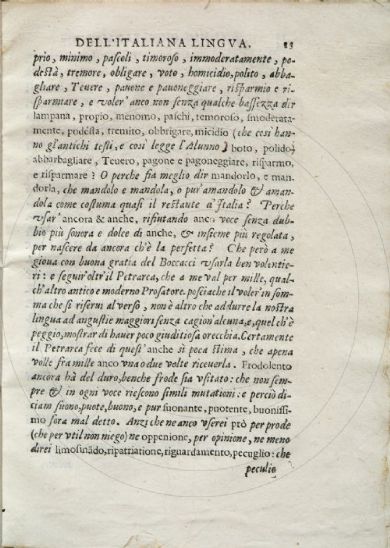 DELL'ITALIANA LINGVA. 85
prio, minimo, pascoli, timoroso, immoderatamente, po-
destà, tremore, obligare, voto, homicidio, polito, abba-
gliare, Teuere, pauone e pauoneggiare, risparmio e ri-
sparmiare, e voler' anco non senza qualche bassezza dir
lampana, propio, menomo, paschi, temoroso, smoderata-
mente, podésta, tremito, obbrigare, micidio (che così han-
no gl'antichi testi, e così legge l'Alunno) boto, polido
abbarbagliare, Teuero, pagone e pagoneggiare, risparmo,
e risparmare? O perche sia meglio dir mandorlo, e man-
dorla, che mandolo e mandola, o pur'amandolo & aman-
dola come costuma quasi il restante d'Italia? Perche
vsar' ancora & anche, rifiutando anco voce senza dub-
bio più sonora e dolce di anche, & insieme più regolata,
per nascere da ancora ch'è la perfetta? Che però a me
gioua con buona gratia del Boccacci vsarla ben volentie-
ri: e seguir'oltr'il Petrarca, che a me val per mille, qual-
ch'altro antico e moderno Prosatore. posciache il voler'in som-
ma che si riserui al verso, non è altro che addurre la nostra
lingua ad angustie maggiori senza cagion'alcuna, e, quel ch'è
peggio, mostrar di hauer poco giuditiosa orecchia. Certamente
il Petrarca fece di quest' anche sì poca stima, che apena
volse fra mille anco vna o due volte riceuerla. Frodolento
ancora hà del duro, benche frode sia vsitato: che non sem-
pre & in ogni voce riescono simili mutationi: e perciò di-
ciam suono, puote, buono, e pur suonante, puotente, buonissi-
mo sora mal detto. Anzi che ne anco vserei prò per prode
(che per vtil non niego) ne oppenione, per opinione, ne meno
direi limosinado, ripatriatione, riguardamento, pecuglio: che
peculio